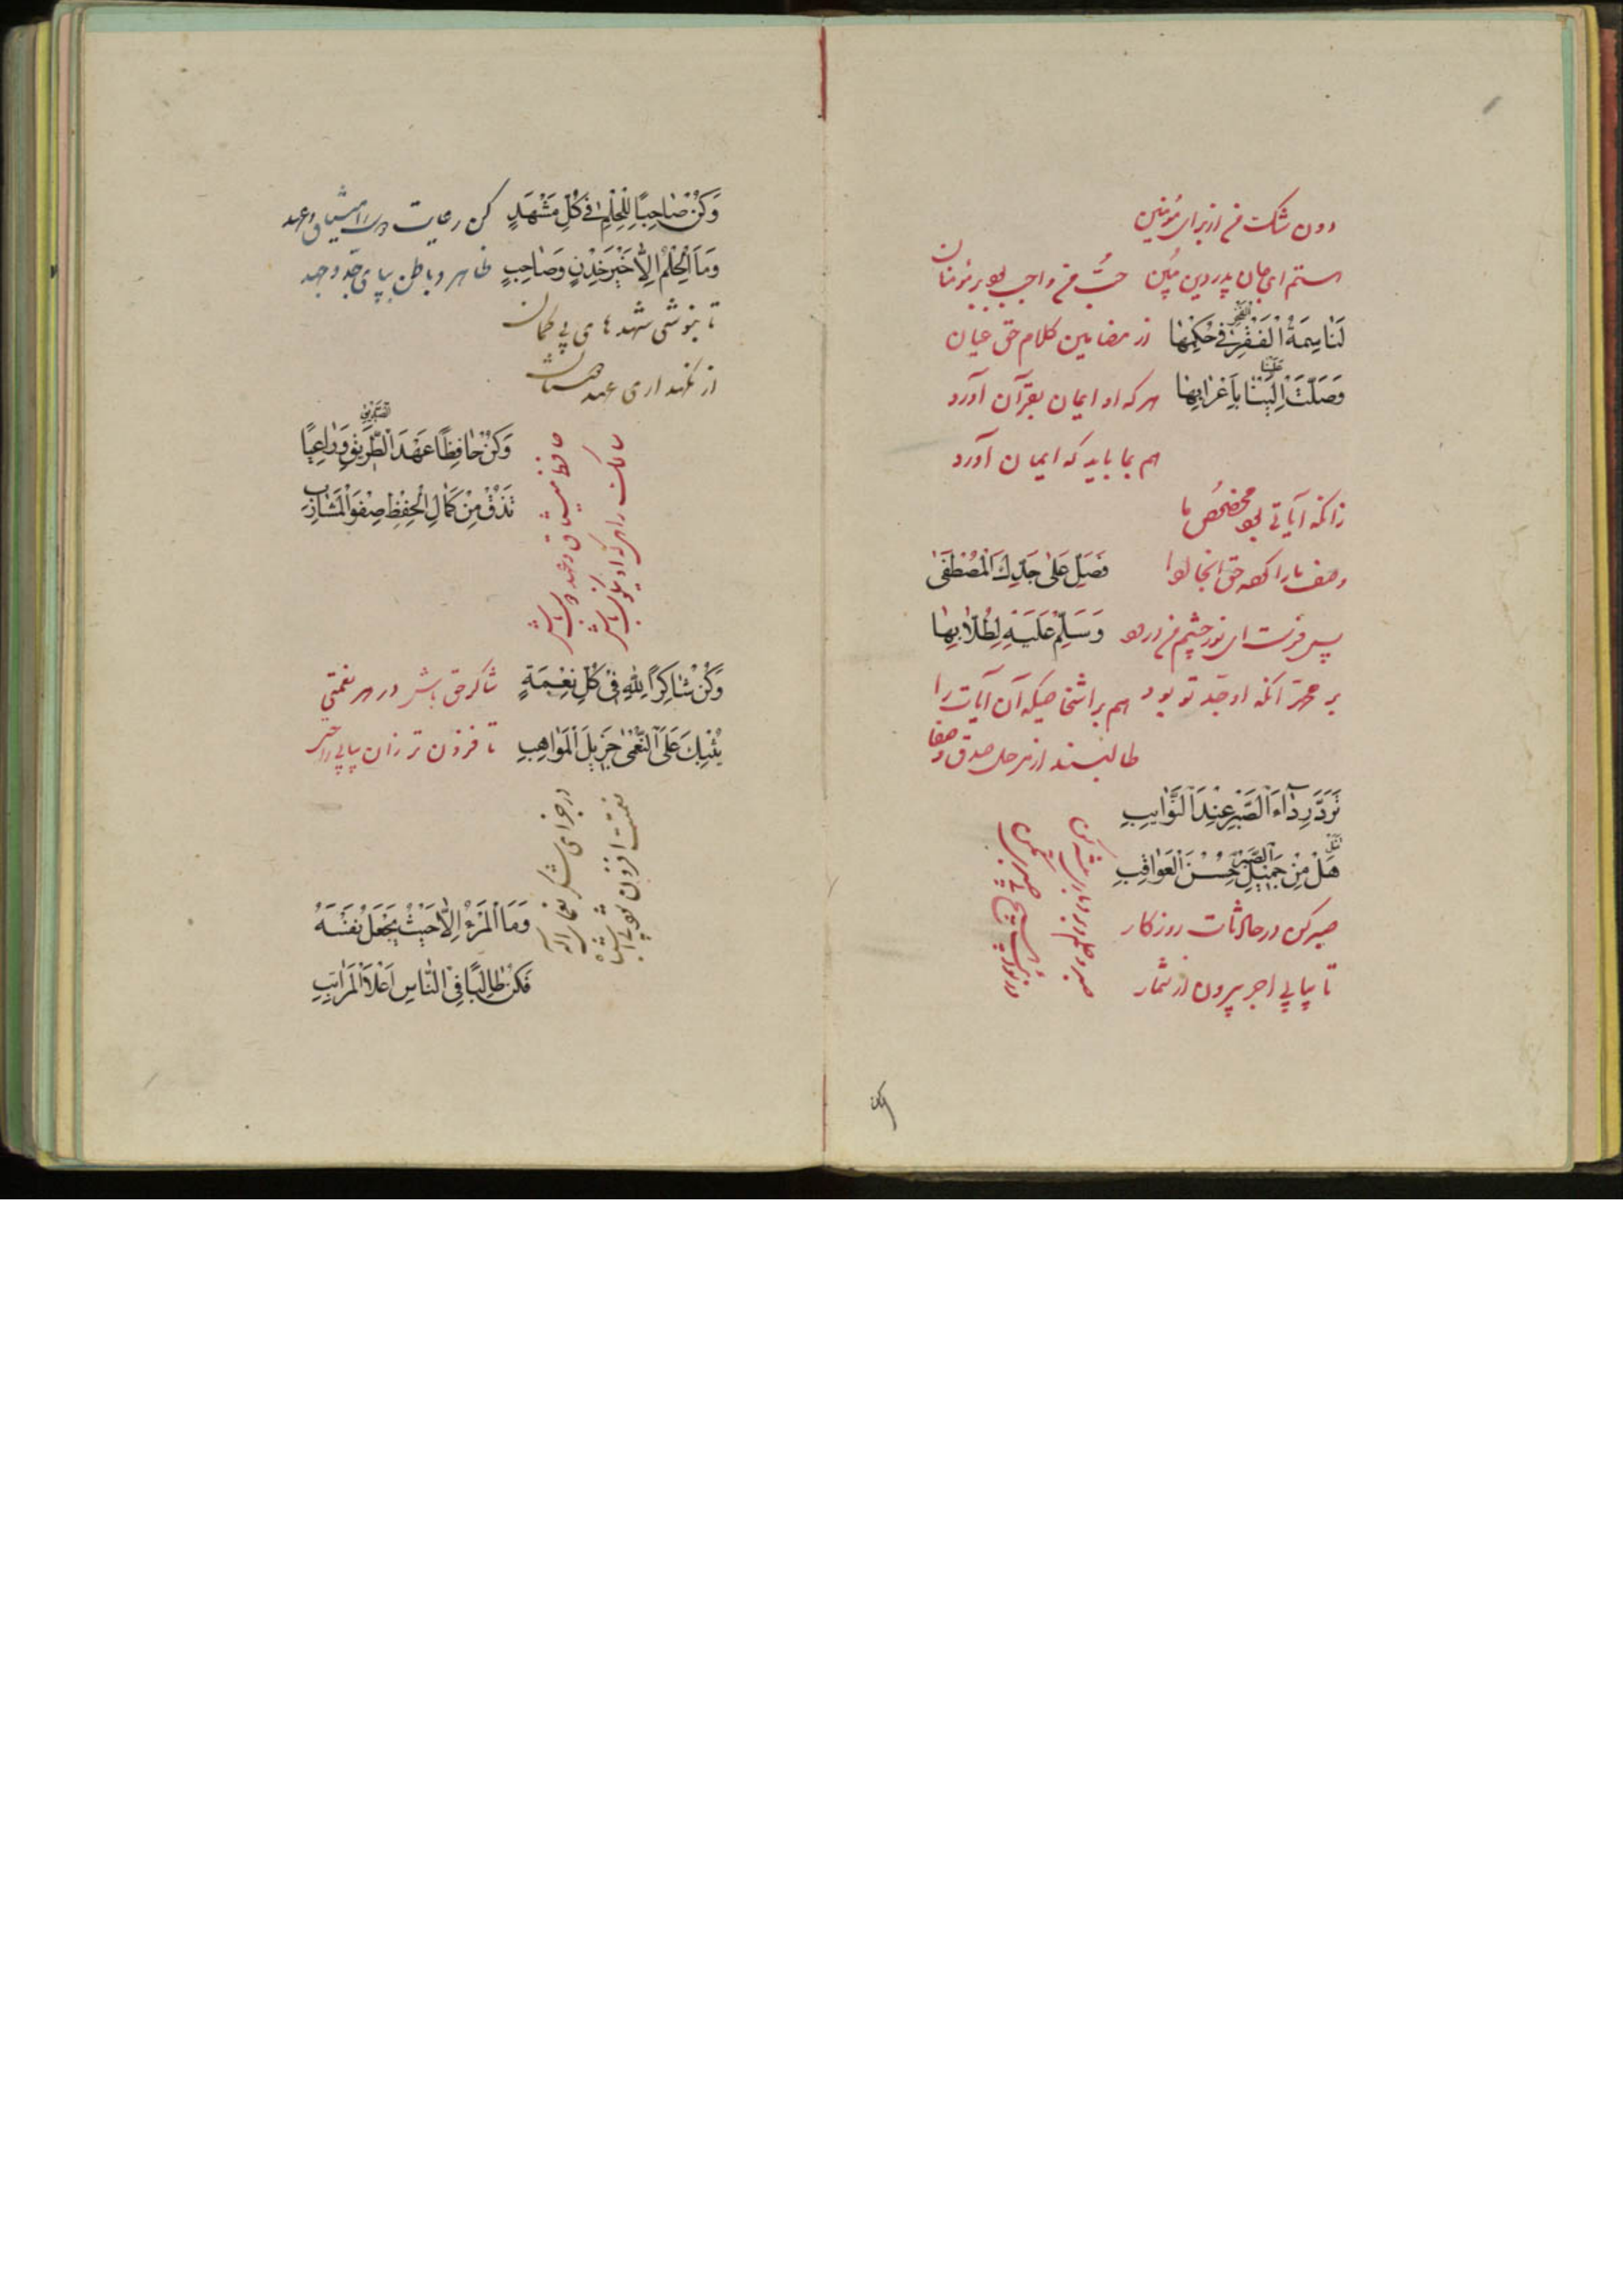 دون شک من از برای مؤمنین
هستم ای جان پدر دین مبین
حب من واجب بود بر مؤمنان
لَنَا سِمَةُ الْفَقْرِ فِي حُكْمِهَا
الفخر
از مضامین کلام حق عیان
وَصَلَّتْ اِلَيْنَا بِاَعْرَابِهَا
علینا
هر که او ایمان بقرآن آورد
هم بما باید که ایمان آورد
زانکه آیاتی بود مخصوص ما
وصف ما را کرده حق آنجا
فَصَلِّ عَلٰى جَدِّكَ الْمُصْطَفٰى
پس فرست ای نور چشم من درود
وَسَلِّمْ عَلَيْهِ لِطُلَّابِهَا
بر محمد آنکه او جد تو بود
هم بر اشخاصیکه آن آیات را
طالبند از هر صدق و صفا
تَرَدَّ رِدَاءَ الصَّبْرِ عِنْدَ النَّوَايِبِ
تنل
هَلْ مِنْ جَمِيْلِ الصَّبْرِ حُسْنَ الْعَوَاقِبِ
صبر کن در حادثات روزکار
تا بیابی اجر بیرون از شمار
وکن
وَكُنْ صَاحِبًا لِلْحِلْمِ فِي كُلِّ مَشْهَدٍ
کن رعایت میثاق و عهد
وَمَا الْحِلْمُ اِلَّا خَيْرُ خِدْنٍ وَصَاحِبٍ
ظاهر و باطن بپای جد و جهد
تا بنوشی شهد های بی گمان
از نگهداری عهد
وَكُنْ حَافِظًا عَهْدَ الطَّرِيْقِ وَرَاعِيًا
الصدیق
تَذُقْ مِنْ كَمَالِ الْحِفْظِ صِفْوَ الْمَشَارِبِ
حافظ میثاق و عهد باش
وَكُنْ شَاكِرًا لِلّٰهِ فِي كُلِّ نِعْمَةٍ
شاکر حق باش در هر نعمتی
يُثِبْكَ عَلَى النُّعْمٰى جَزِيْلَ الْمَوَاهِبِ
تا فزون تر زان بیابی
نعمت افزون
در جزای شکر
وَمَا الْمَرْءُ اِلَّا حَيْثُ يَجْعَلُ نَفْسَهُ
فَكُنْ طَالِبًا فِي النَّاسِ اَعْلَا الْمَرَاتِبِ